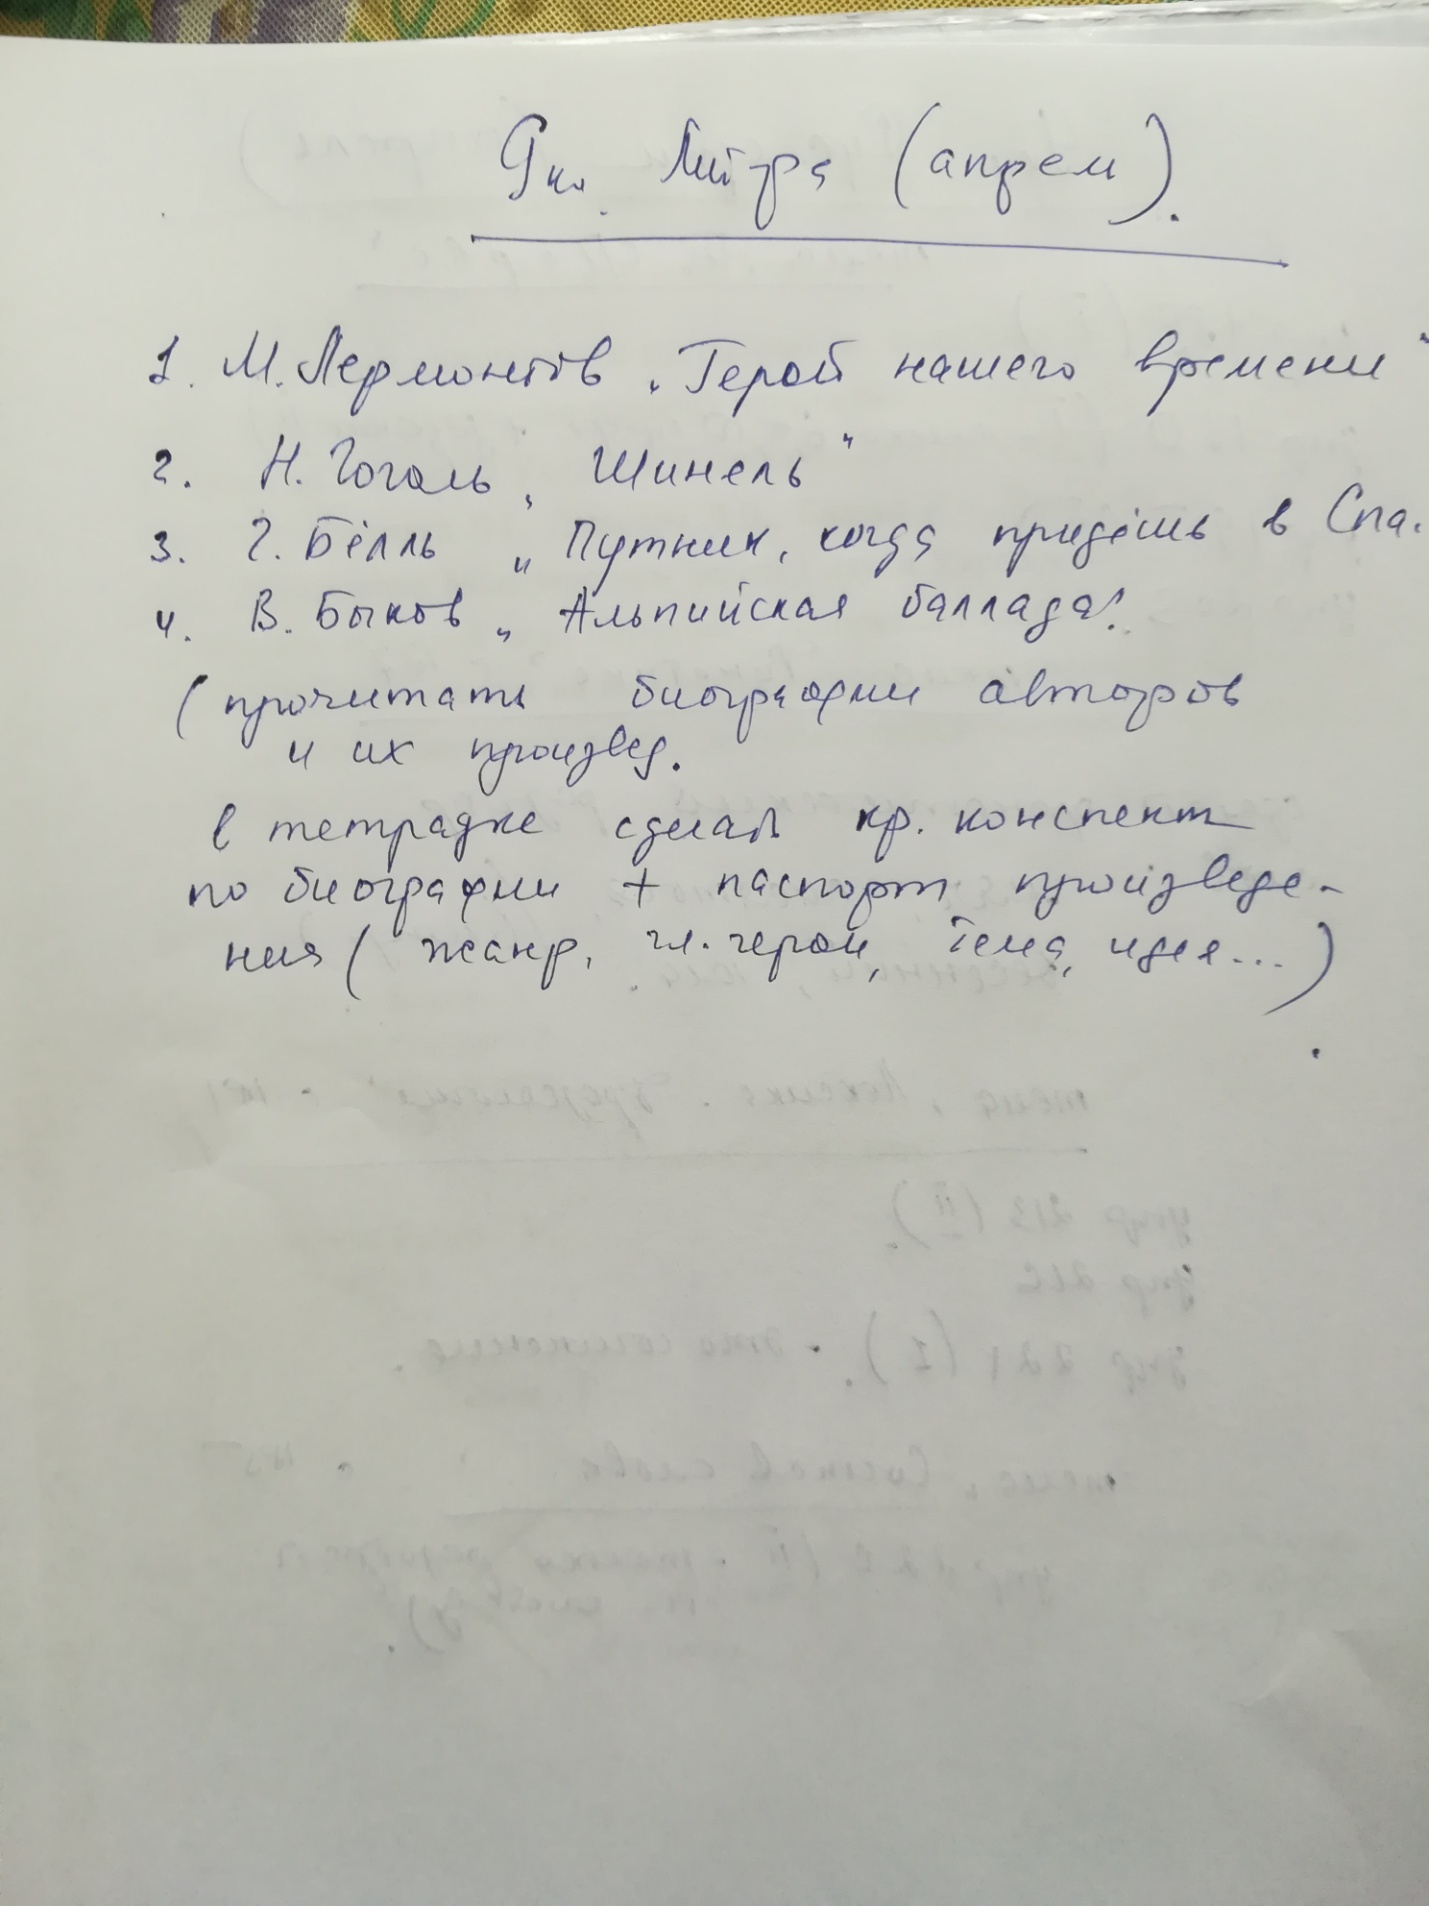 9 кл. Лит-ра (апрель).
1. М. Лермонтов „Герой нашего времени"
2. Н. Гоголь „Шинель"
3. Г. Бёлль „Путник, когда придёшь в Спа.
4. В. Быков „Альпийская баллада".
(прочитать биографии авторов
и их произвед.
в тетрадке сделать кр. конспект
по биографии + паспорт произведе-
ния (жанр, гл. герои, тема, идея...)